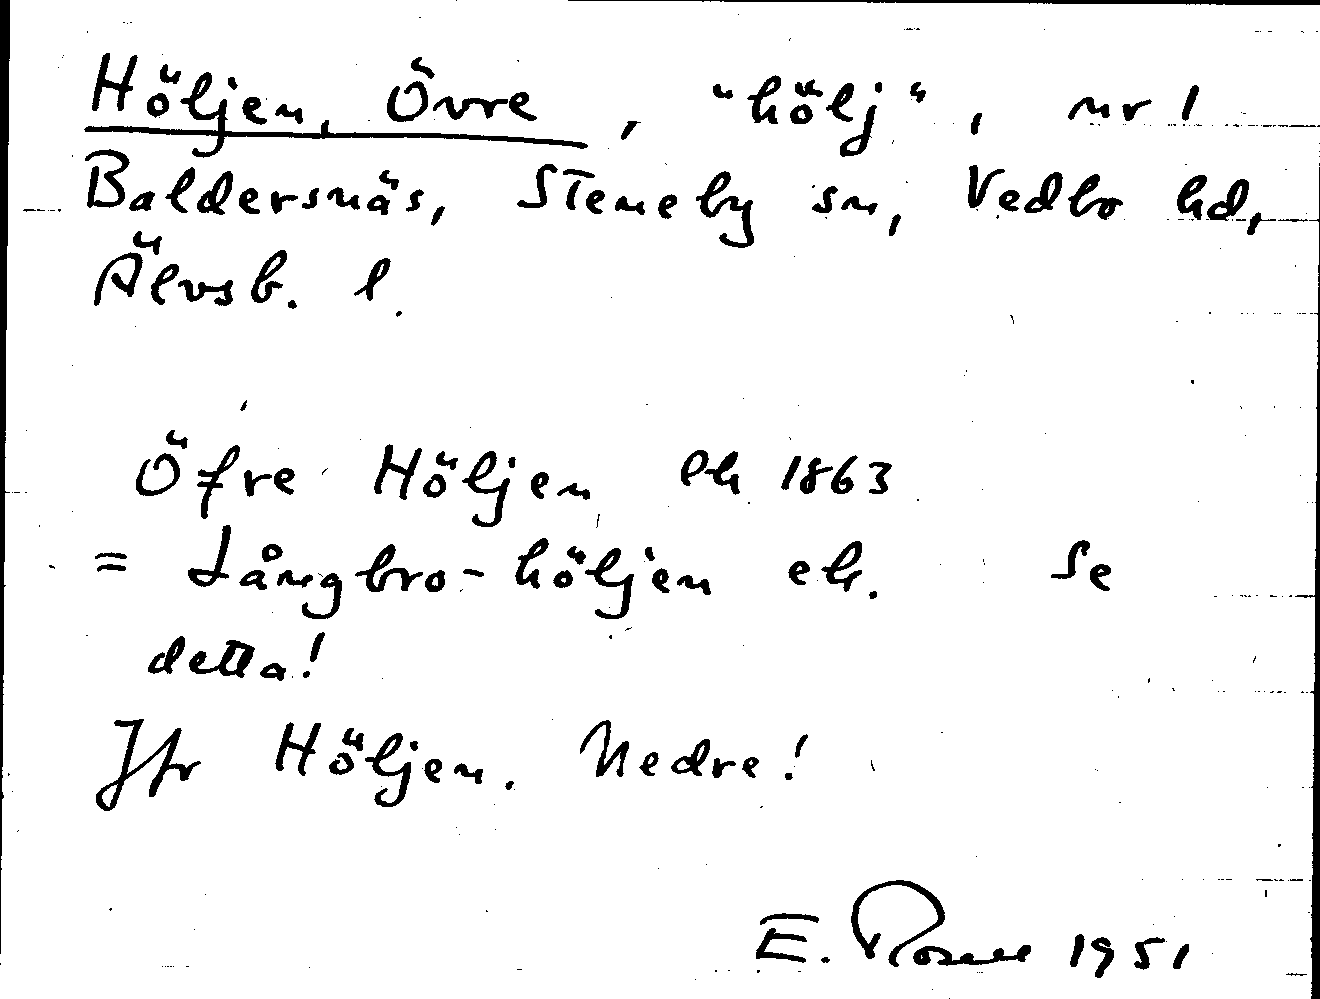 Höljen, Övre, "hölj", nr 1
Baldersnäs, Steneby sn, Vedbo hd,
Älvsb. l.
Öfre Höljen ek 1863
= Långbro-höljen ek. Se
detta!
Jfr Höljen. Nedre!
E. 1951